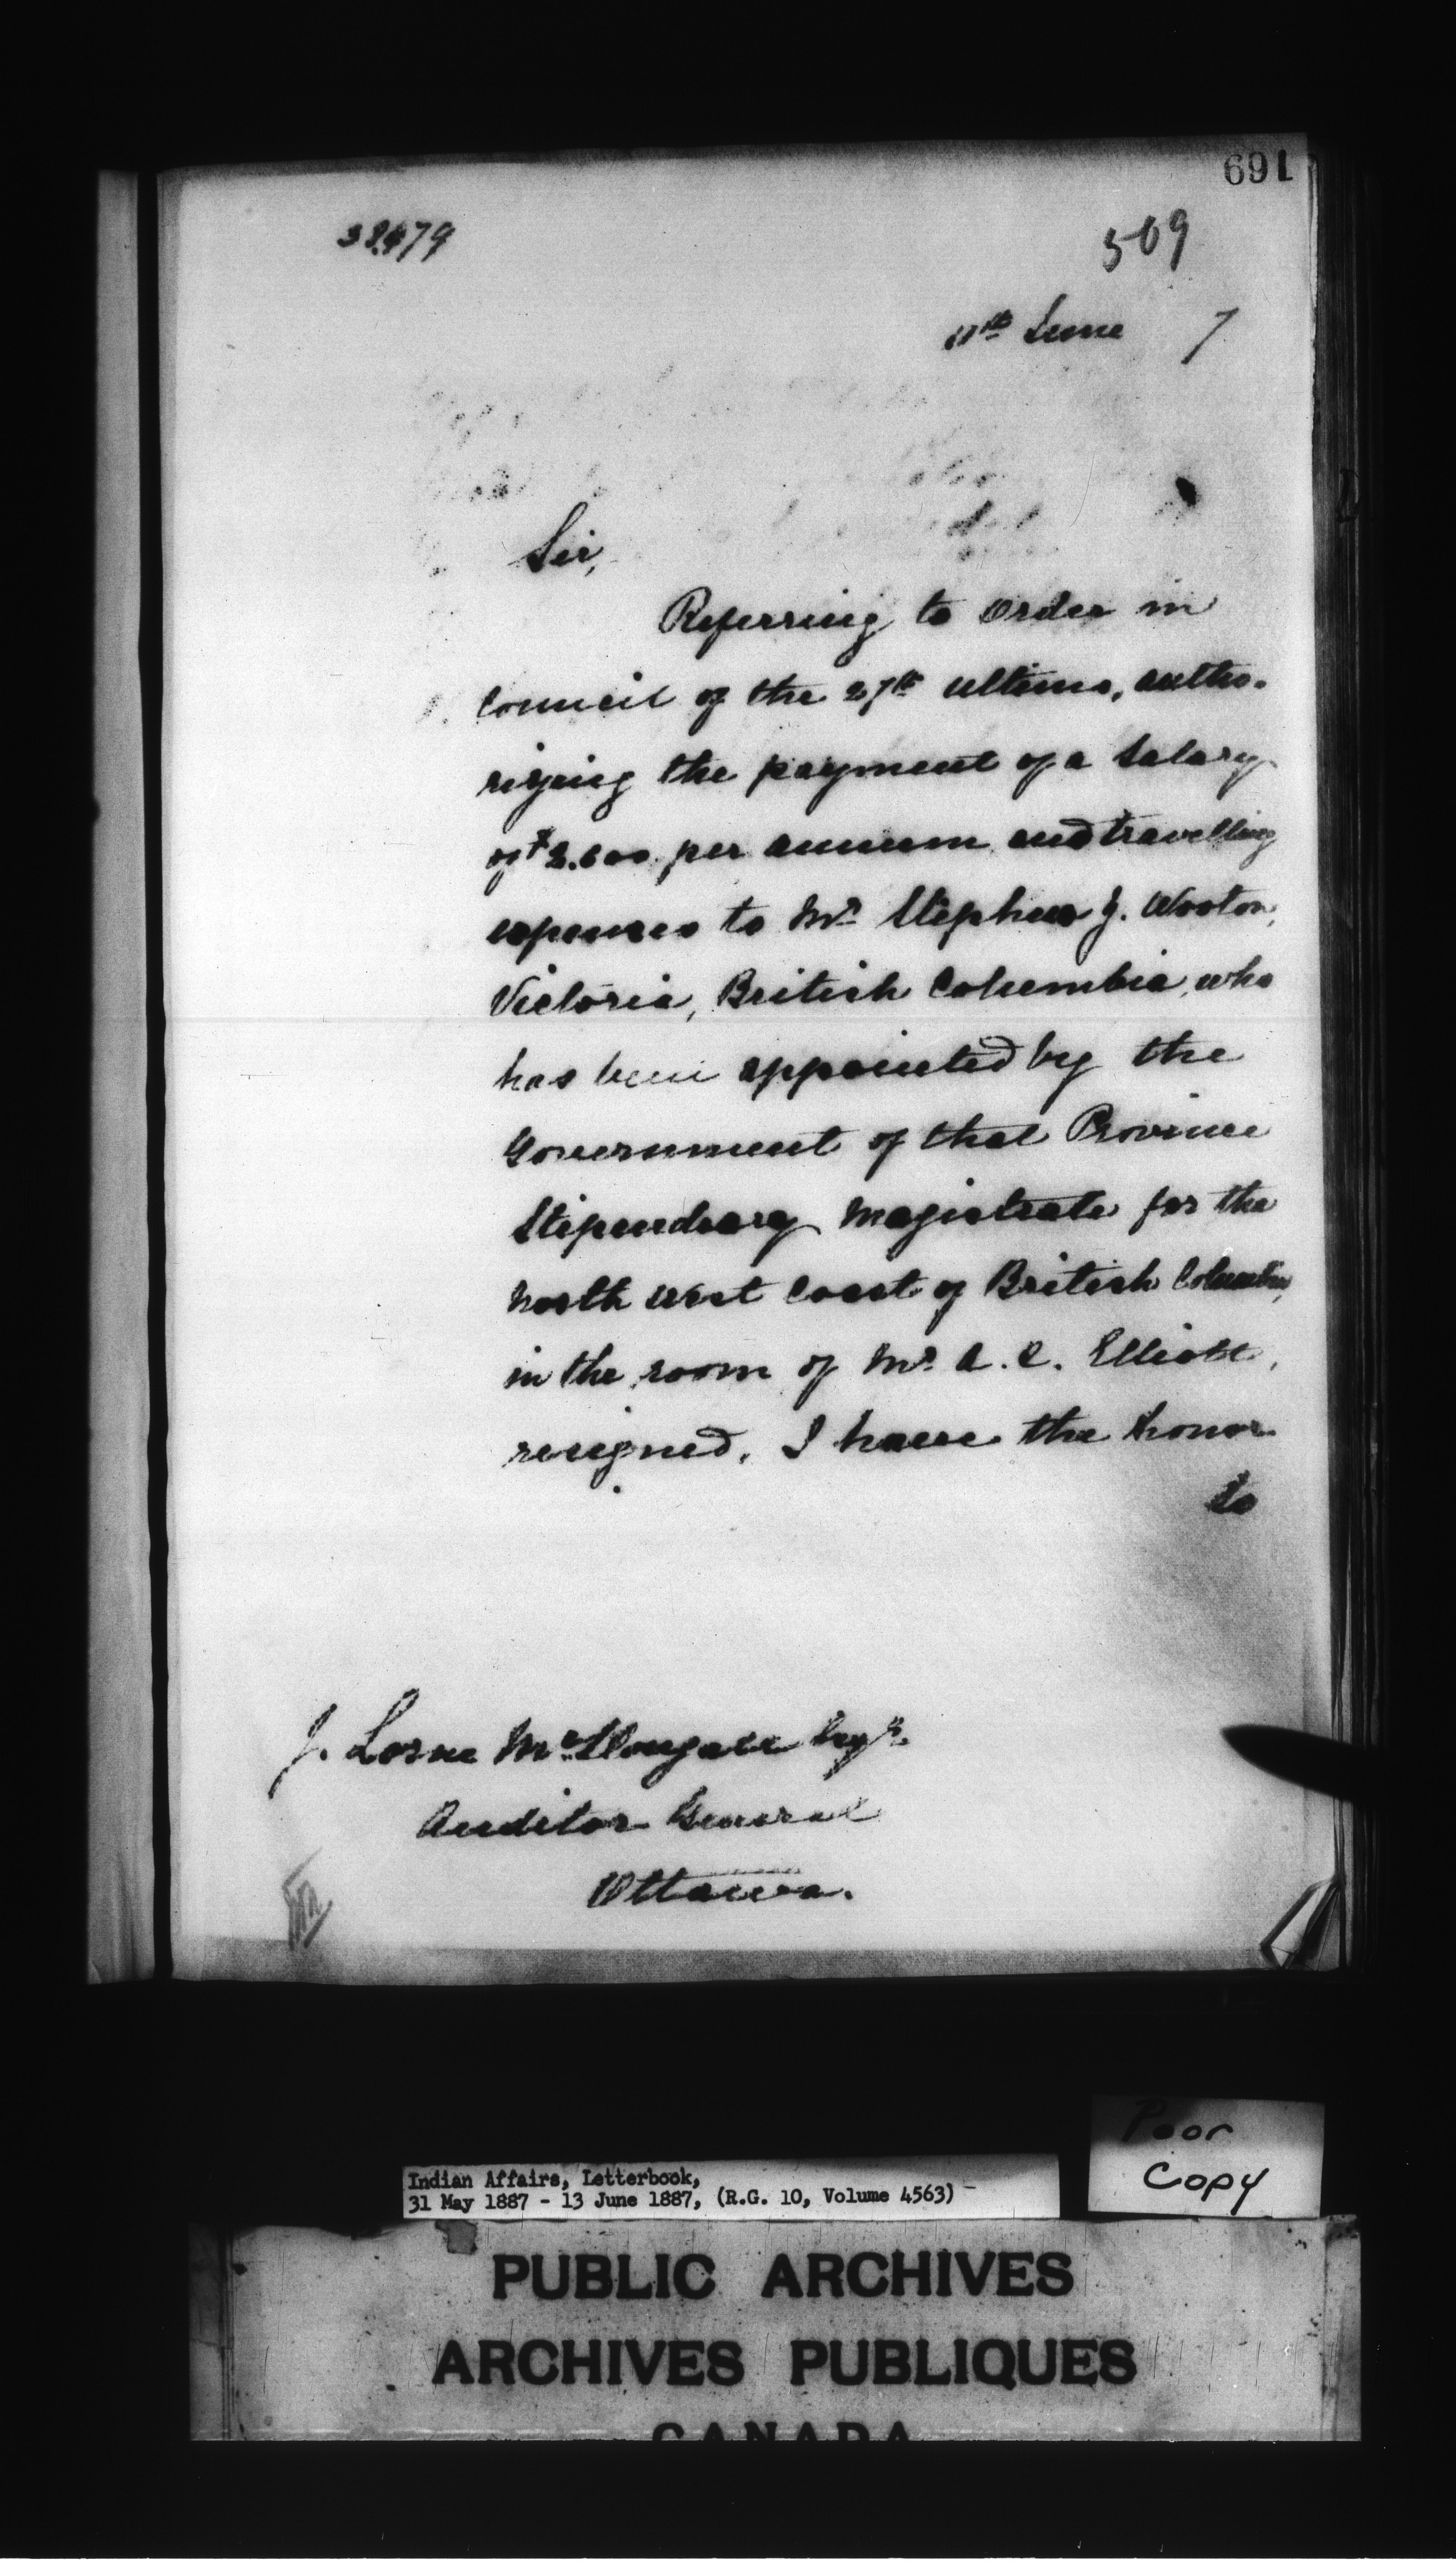 691
38479
509
11th June 7
Sir,
Referring to Order in
Council of the 27th ultimo, autho-
rizing the payment of a Salary
of $ per annum and travelling
expenses to Mr Stephen Y. Wooton,
Victoria, British Columbia, who
has been appointed by the
Government of that Province
Stipendiary Magistrate for the
North West Coast of British Columbia,
in the room of Mr. A. C. Elliott,
resigned, I have the honor
to
J. Lorne McDougall Esqr.
Auditor General
Ottawa.
Poor
Copy
Indian Affairs, Letterbook,
31 May 1887 - 13 June 1887, (R.G. 10, Volume 4563)
PUBLIC ARCHIVES
ARCHIVES PUBLIQUES
CANADA